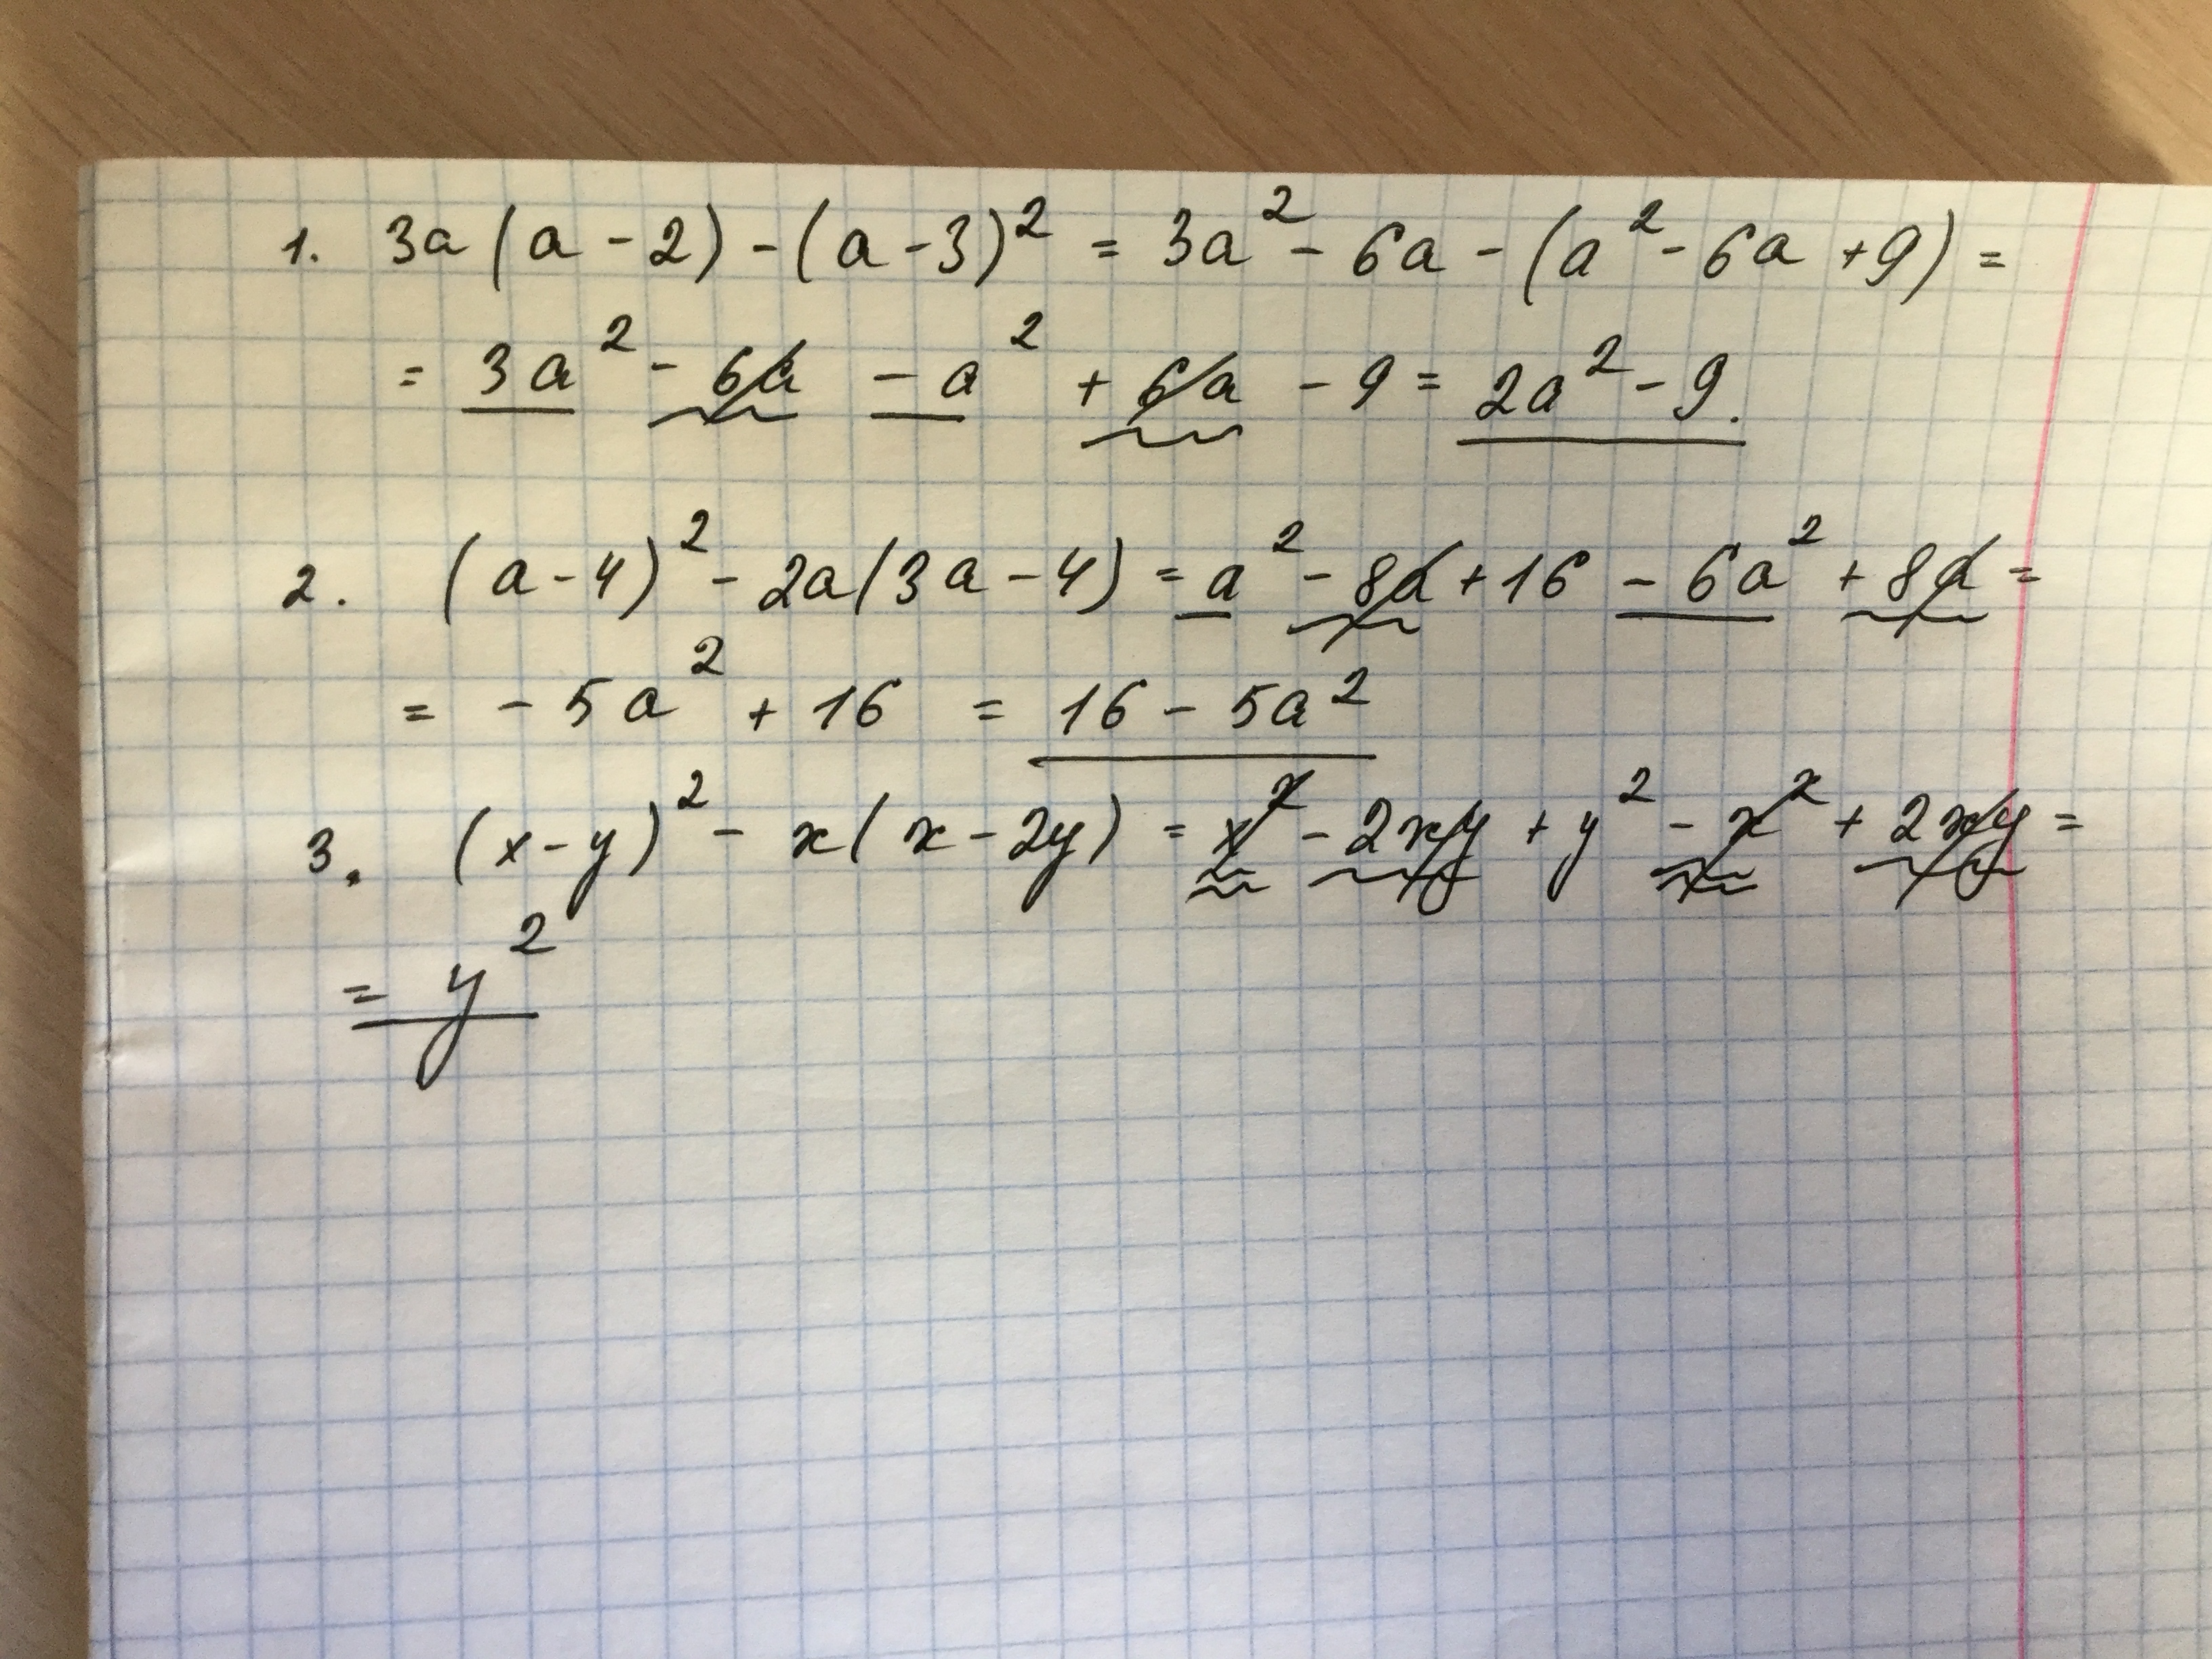 1. 3a(a-2)-(a-3)² = 3a²-6a-(a²-6a+9)=
= 3a²-6a-a²+6a-9=2a²-9.
2. (a-4)²-2a(3a-4)=a²-8a+16-6a²+8a=
= -5a²+16 = 16-5a²
3. (x-y)²-x(x-2y)=x²-2xy+y²-x²+2xy=
= y²